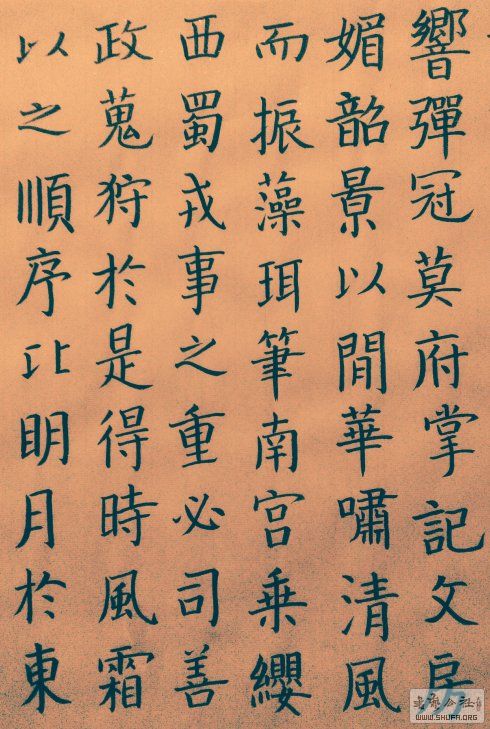 響彈冠莫府掌記文房
媚韶景以閒華嘯清風
而振藻珥筆南宮乘纓
西蜀戎事之重必司善
政蒐狩於是得時風霜
以之順序比眀月於東
WWW.SHUFA.ORG